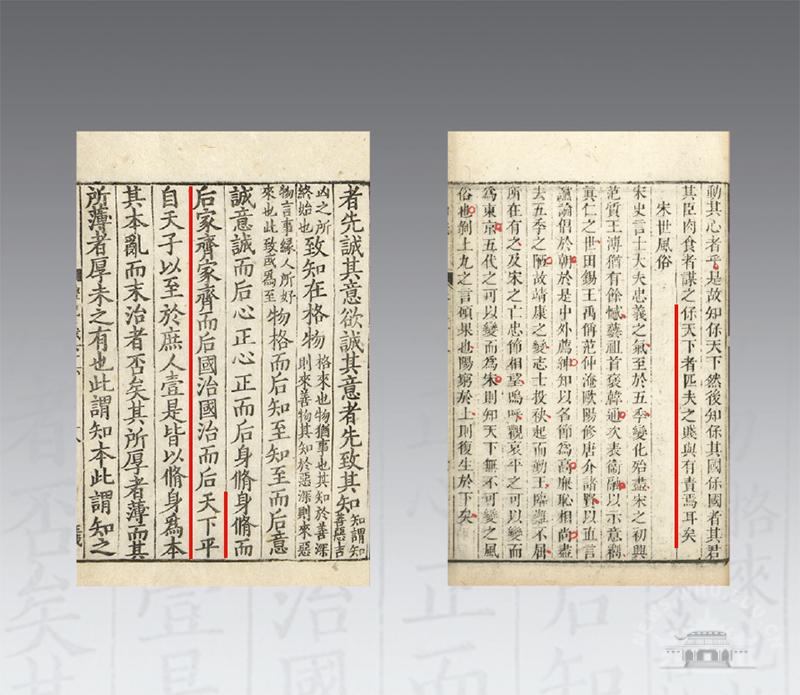 者先誠其意欲誠其意者先致其知知謂知善惡吉
凶之所終始也致知在格物格來也物猶事也其知於善深則來善物其知於惡深則來惡
物言事緣人所好來也此致或為至物格而后知至知至而后意
誠意誠而后心正心正而后身脩身脩而
后家齊家齊而后國治國治而后天下平
自天子以至於庶人壹是皆以脩身為本
其本亂而末治者否矣其所厚者薄而其
所薄者厚未之有也此謂知本此謂知之
動其心者乎是故知保天下然後知保其國保國者其君
其臣肉食者謀之保天下者匹夫之賤與有責焉耳矣
宋世風俗
宋史言士大夫忠義之氣至於五季變化殆盡宋之初興
范質王溥猶有餘憾藝祖首褒韓通次表衞融以示意嚮
真仁之世田錫王禹偁范仲淹歐陽修唐介諸賢以直言
讜論倡於朝於是中外薦紳知以名節為高廉恥相尚盡
去五季之陋故靖康之變志士投袂起而勤王臨難不屈
所在有之及宋之亡忠節相望嗚呼觀哀平之可以變而
為東京五代之可以變而為宋則知天下無不可變之風
俗也剝上九之言碩果也陽窮於上則復生於下矣